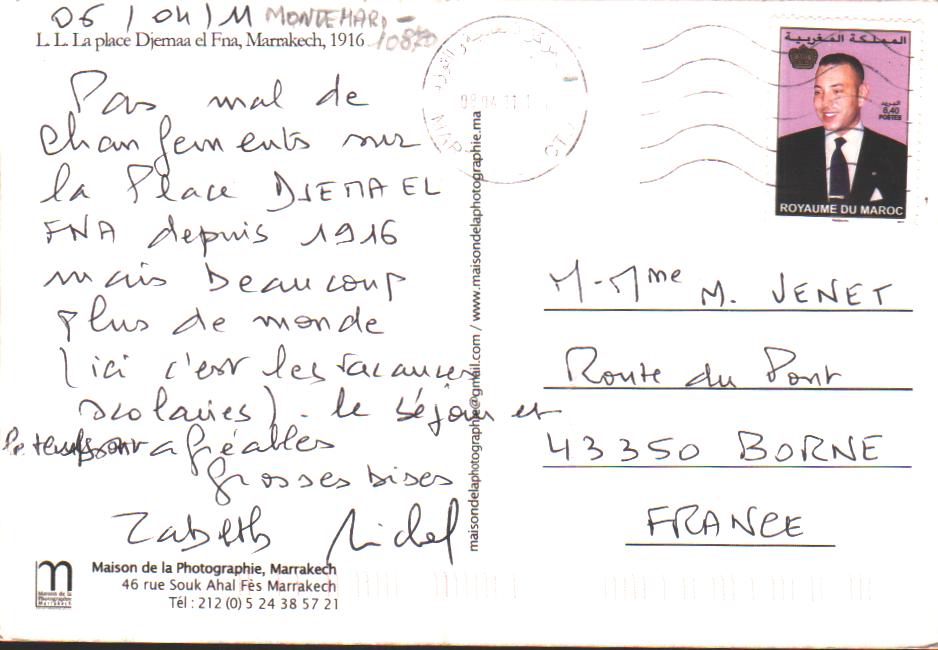 06/04/11 MONTEMARD -
L. L. La place Djemaa el Fna, Marrakech, 1916
10870
Pas mal de
changements sur
la Place DJEMA EL
FNA depuis 1916
mais beaucoup
plus de monde
(ici c'est les vacances
scolaires). le séjour et
le temps sont agréables
Grosses bises
Zabeth Michel
Maison de la Photographie, Marrakech
46 rue Souk Ahal Fès Marrakech
Tél : 212 (0) 5 24 38 57 21
m
Maison de la
Photographie
Marrakech
maisondelaphotographie@gmail.com / www.maisondelaphotographie.ma
المملكة المغربية
البريد
8,40
POSTES
ROYAUME DU MAROC
M-Mme M. JENET
Route du Pont
43350 BORNE
FRANCE